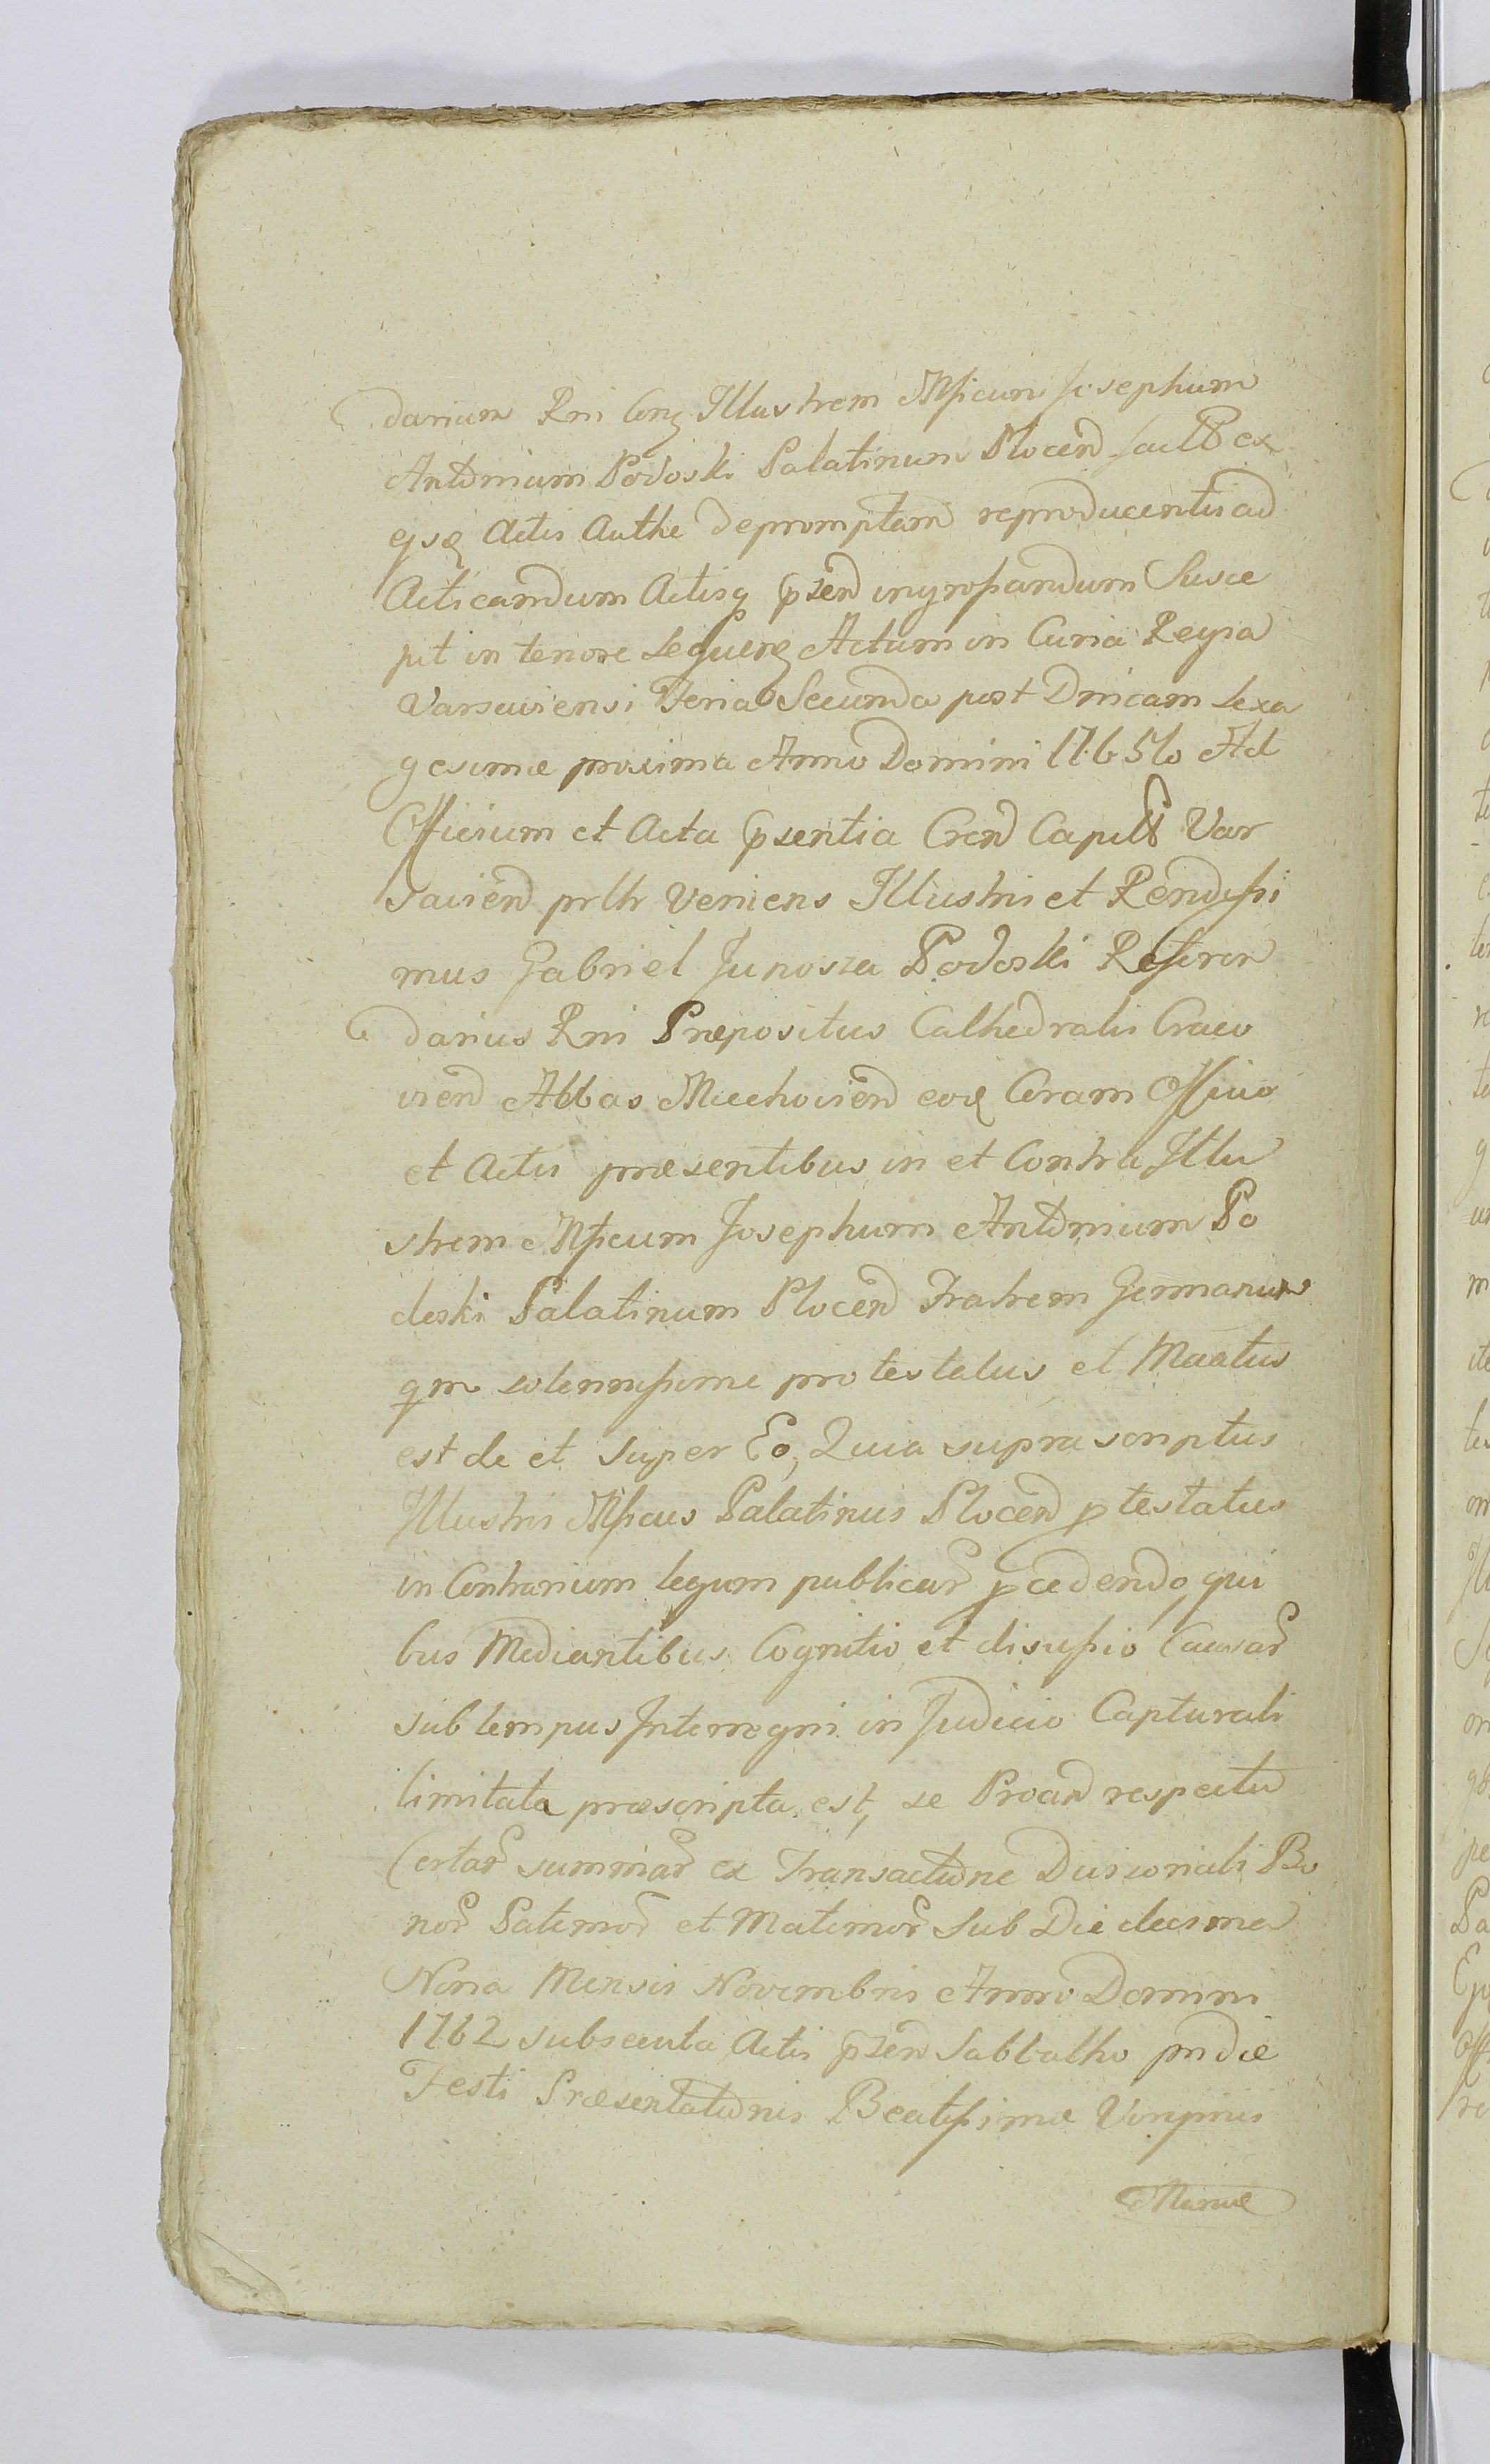 darium Rni Conz Illustrem Mficum Josephum
Antonium Podoski Palatinum Plocen fact ex
ejsq Actis Authe depromptam reproducentis ad
Acticandum Actisq psen ingrossandum Susce
pit in tenore sequenz Actum in Curia Regia
Varsaviensi Feria Secunda post Dnicam Sexa
gesimæ proxima Anno Domini 1765to Ad
Officium et Acta psentia Cren Capit Var
savien prlr veniens Illustris et Rendissi
mus Gabriel Junosza Podoski Referen
darius Rni Præpositus Cathedralis Craco
vien Abbas Miechovien eoq Coram Officio
et Actis præsentibus in et Contra Illu
strem Mficum Josephum Antonium Po
doski Palatinum Plocen Fratrem Germanum
qm solennissime protestatus et Maatus
est de et super Eo, Quia supra scriptus
Illustris Mficus Palatinus Plocen ptestatus
in Contrarium legum publicar pcedendo, qui
bus Mediantibus Cognitio et discussio Causar
sub tempus Interregni in Judicio Capturali
limitata præscripta est, se Proan respectu
Certar summar ex Transactione Divisoriali Bo
nor Paternor et Maternor Sub Die decima
Nona Mensis Novembris Anno Domini
1762 subsecuta Actis psen Sabbatho pridie
Festi Præsentationis Beatissimæ Virginis
Mariæ